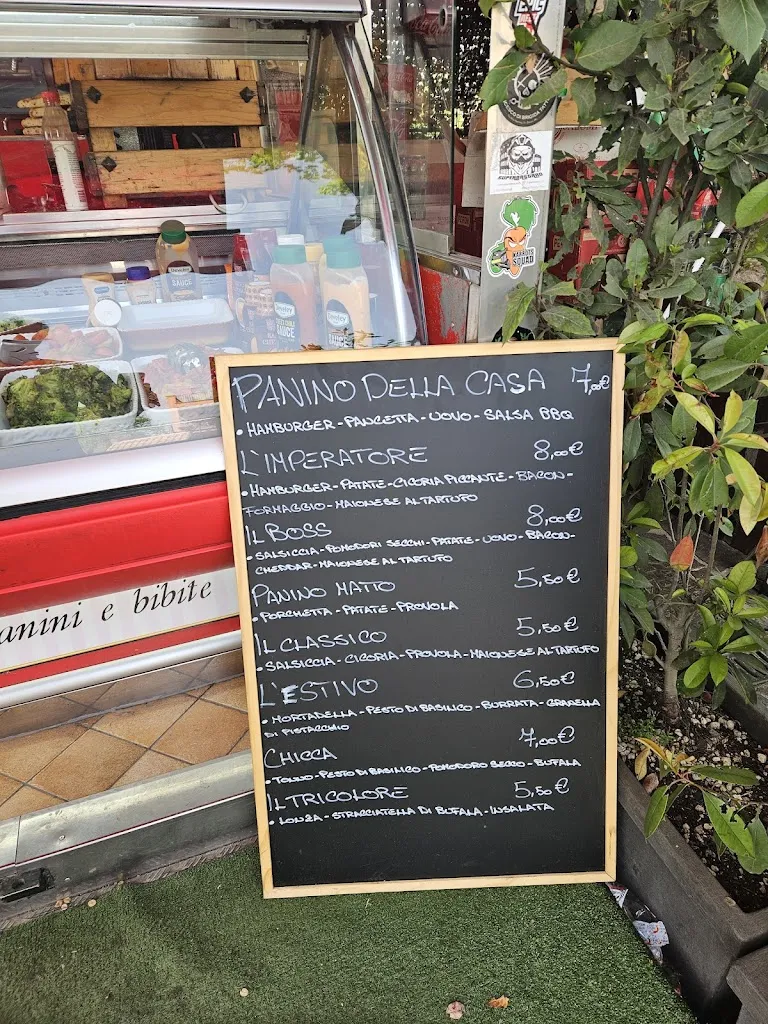 PANINO DELLA CASA 7,00€
• HAMBURGER - PANCETTA - UOVO - SALSA BBQ
L'IMPERATORE 8,00€
• HAMBURGER - PATATE - CICORIA PICCANTE - BACON -
FORMAGGIO - MAIONESE AL TARTUFO
IL BOSS 8,00€
• SALSICCIA - POMODORI SECCHI - PATATE - UOVO - BACON -
CHEDDAR - MAIONESE AL TARTUFO
PANINO MATTO 5,50€
• PORCHETTA - PATATE - PROVOLA
IL CLASSICO 5,50€
• SALSICCIA - CICORIA - PROVOLA - MAIONESE AL TARTUFO
L'ESTIVO 6,50€
• MORTADELLA - PESTO DI BASILICO - BURRATA - GRANELLA
DI PISTACCHIO
CHICCA 7,00€
• TONNO - PESTO DI BASILICO - POMODORO SECCO - BUFALA
IL TRICOLORE 5,50€
• LONZA - STRACCIATELLA DI BUFALA - INSALATA
anini e bibite
Develey
SAUCE
Develey
SAUCE
KARROTS
SQUAD